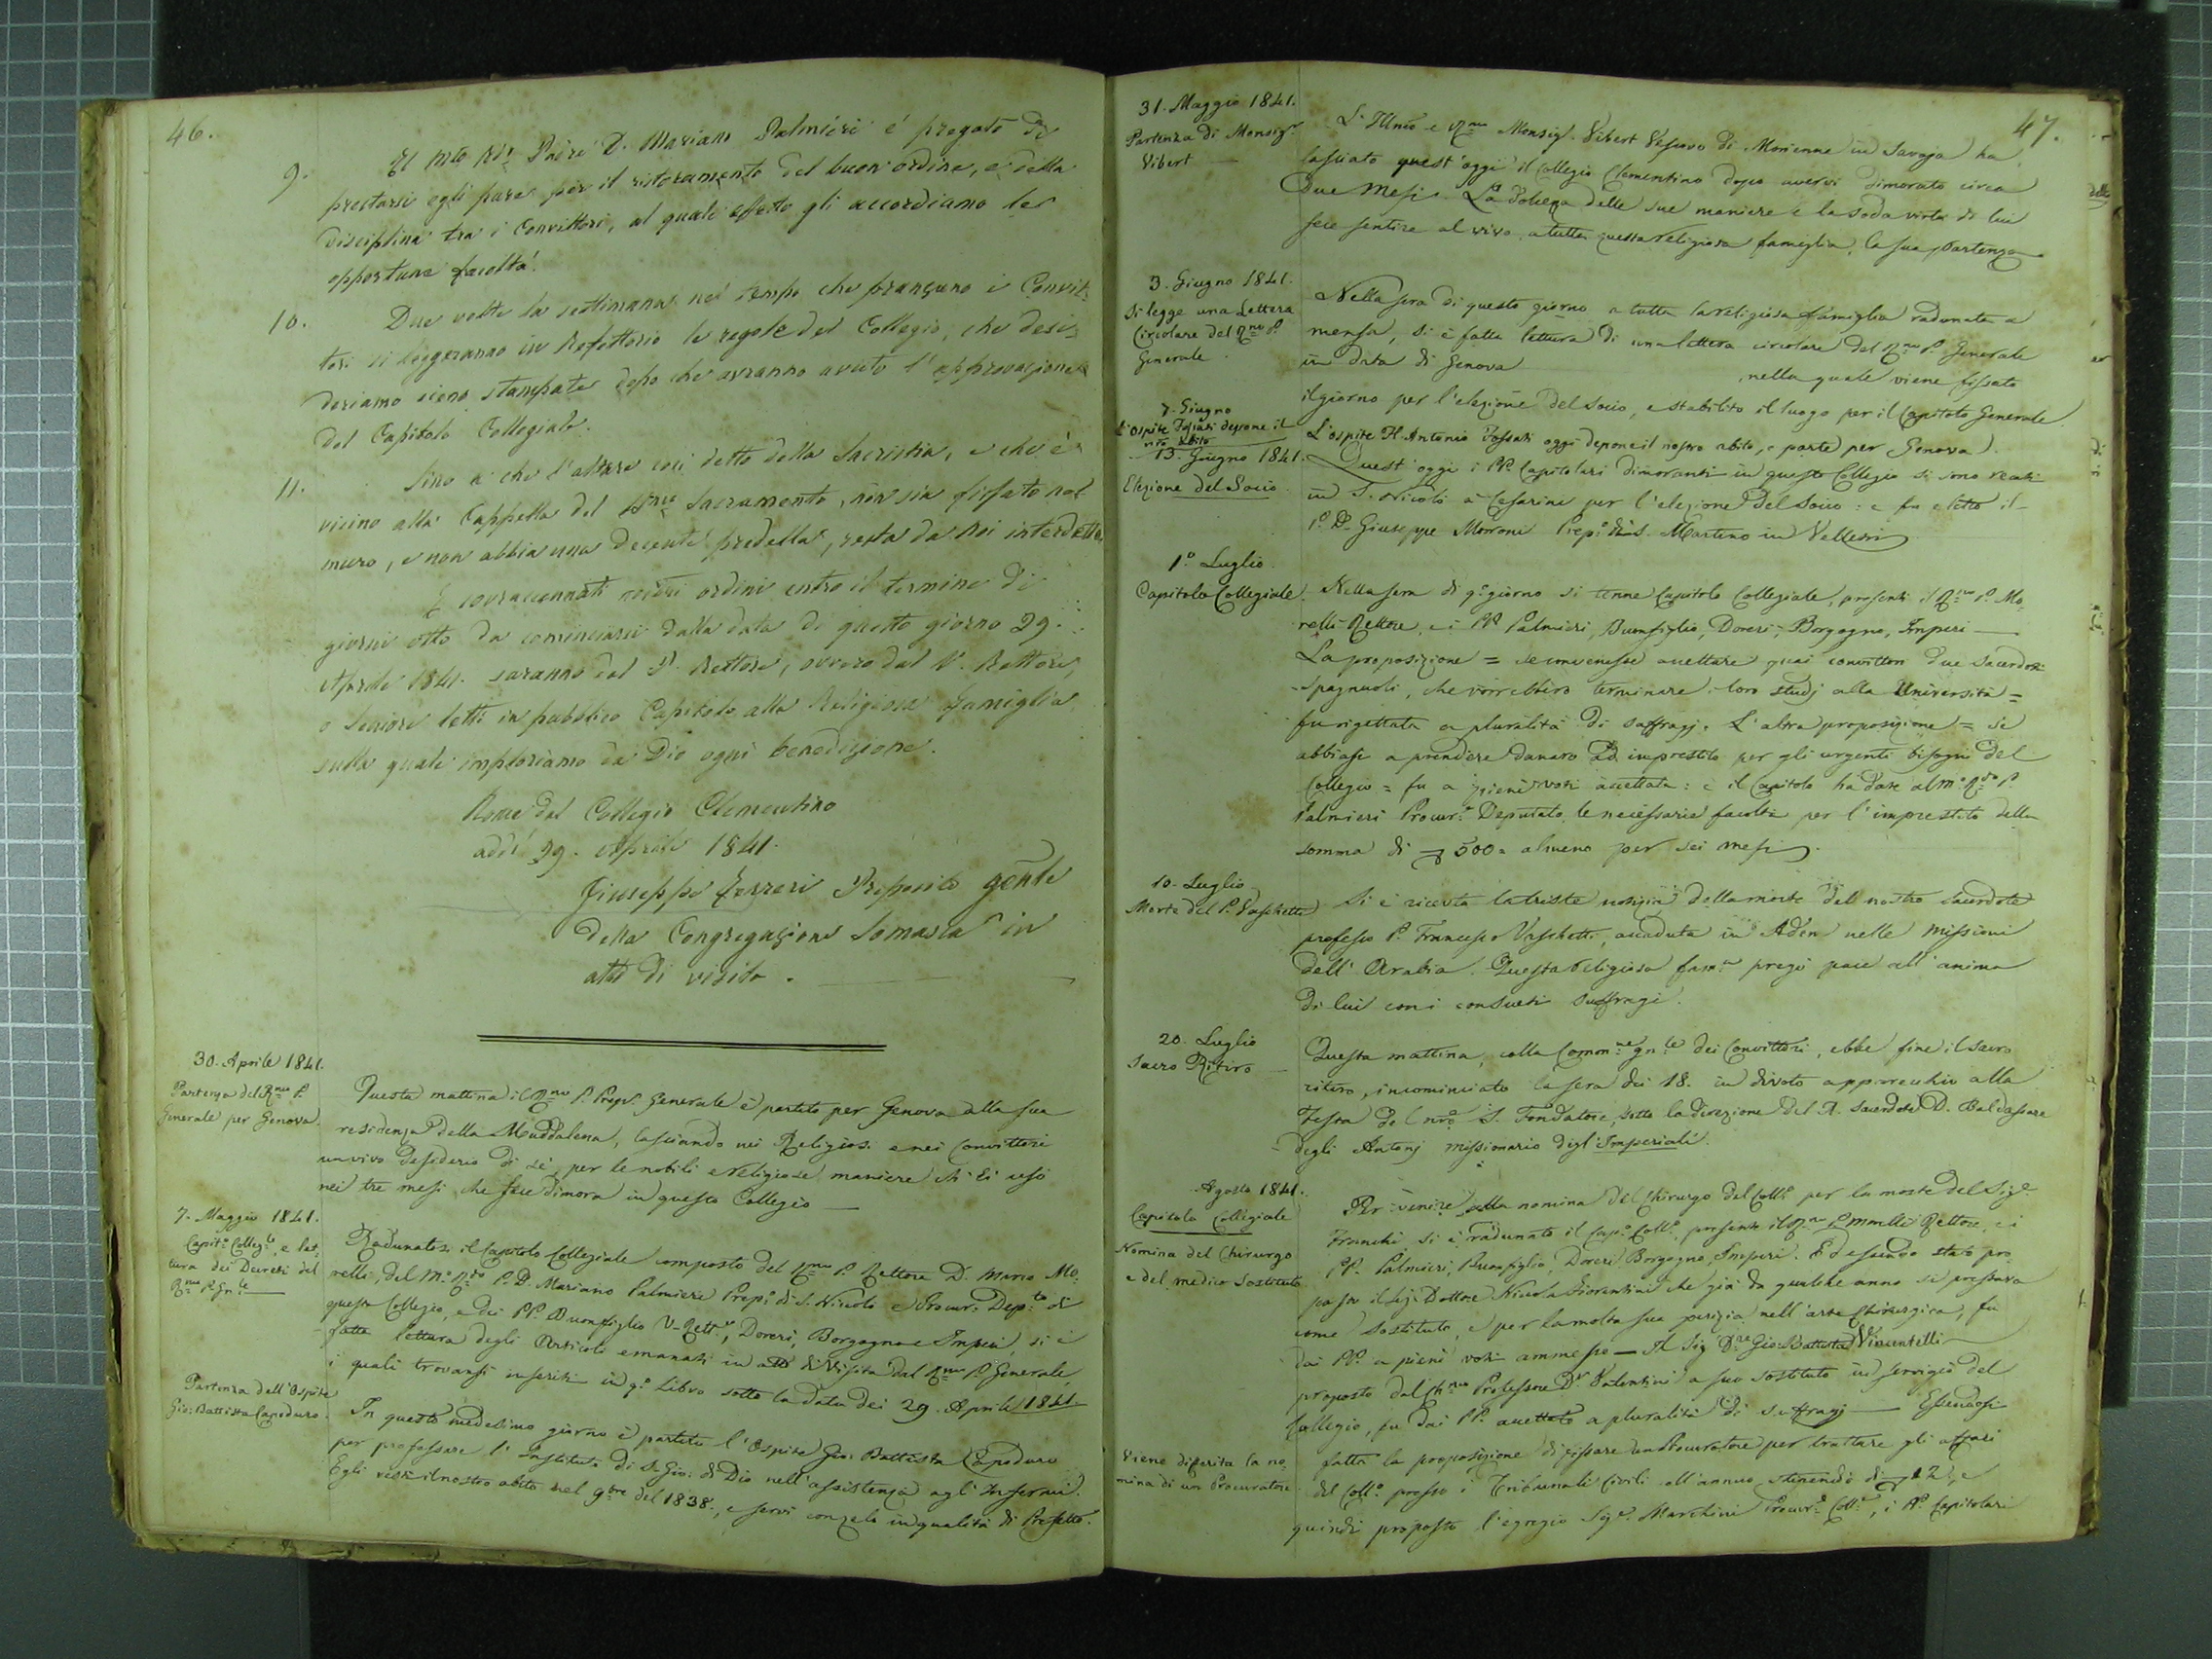 46.
9. Il Mto Rdo Padre D. Mariano Palmieri è pregato di
prestarsi egli pure per il ristoramento del buon ordine, e della
disciplina tra i Convittori, al quale effetto gli accordiamo le
opportune facoltà.
10. Due volte la settimana nel tempo che pranzano i Convit-
tori si leggeranno in Refettorio le regole del Collegio, che desi-
deriamo sieno stampate dopo che avranno avuto l'approvazione
del Capitolo Collegiale.
11. Sino a che l'altare così detto della Sacristia, e che è
vicino alla Cappella del SSmo Sacramento, non sia fissato nel
muro, e non abbia una decente predella, resta da Noi interdetto.
I sovraccennati nostri ordini entro il termine di
giorni otto da cominciarsi dalla data di questo giorno 29.
Aprile 1841. saranno dal P. Rettore, ovvero dal V. Rettore,
o Seniore letti in pubblico Capitolo alla Religiosa Famiglia
sulla quale imploriamo da Dio ogni benedizione.
Roma dal Collegio Clementino
addì 29. Aprile 1841.
Giuseppe Ferreri Preposito Gente
della Congregazione Somasca in
atto di visita.
30. Aprile 1841.
Partenza del Rmo P.
Generale per Genova.
Questa mattina il Rmo P. Prepo. Generale è partito per Genova alla sua
residenza della Maddalena, lasciando nei Religiosi e nei Convittori
un vivo desiderio di sè, per le nobili e religiose maniere ch'Ei usò
nei tre mesi che fece dimora in questo Collegio
7. Maggio 1841.
Capito. Collegle. e let-
tura dei Decreti del
Rmo P. Gnle
Radunatosi il Capitolo Collegiale composto del Rmo P. Rettore D. Marco Mo-
relli, del Mo. Rdo P. D. Mariano Palmieri Prepo. di S. Nicolò e Procure. Depto. di
questo Collegio, e dei PP. Buonfiglio V-Rette., Doreri, Borgogno e Imperi, si è
fatta lettura degli Articoli emanati in atto di Visita dal Rmo P. Generale,
i quali trovansi inseriti in qo. Libro sotto la data dei 29. Aprile 1841
Partenza dell'Ospite
Gio: Battista Capoduro.
In questo medesimo giorno è partito l'Ospite Gio: Battista Capoduro
per professare l'Instituto di S. Gio: di Dio nell'assistenza agl'Infermi.
Egli vestì il nostro abito nel 9bre del 1838., e servì con zelo in qualità di Prefetto.
47.
31. Maggio 1841.
Partenza di Monsigr
Vibert
L'Illmo e Rmo Monsigr. Vibert Vescovo di Morienne in Savoja ha
lasciato quest'oggi il Collegio Clementino dopo avervi dimorato circa
due Mesi. La dolcezza delle sue maniere e la soda virtù di lui
fece sentire al vivo a tutta questa religiosa famiglia la sua partenza
3. Giugno 1841.
Si legge una Lettera
Circolare del Rmo P.
Generale.
Nella sera di questo giorno a tutta la religiosa famiglia radunata a
mensa, si è fatta lettura di una lettera circolare del Rmo P. Generale
in data di Genova nella quale viene fissato
il giorno per l'elezione del Socio, e stabilito il luogo per il Capitolo Generale.
7. Giugno
L'Ospite Fossati depone il
nro abito
L'ospite F. Antonio Fossati oggi depone il nostro abito, e parte per Genova.
13. Giugno 1841.
Elezione del Socio.
Quest'oggi i PP. Capitolari dimoranti in questo Collegio si sono recati
in S. Nicolò a' Cesarini per l'elezione del Socio: e fu eletto il
P. D. Giuseppe Morroni Prepo. di S. Martino in Velletri
1o. Luglio.
Capitolo Collegiale.
Nella sera di qo. giorno si tenne Capitolo Collegiale, presenti il Rmo P. Mo-
relli Rettore, e i PP. Palmieri, Buonfiglio, Doreri, Borgogno, Imperi
La proposizione = se convenisse accettare quai convittori due Sacerdoti
Spagnuoli, che vorrebbero terminare i loro studj alla Università =
fu rigettata a pluralità di suffragj. L'altra proposizione = se
abbiasi a prendere danaro ad imprestito per gli urgenti bisogni del
Collegio = fu a pieni voti accettata: e il Capitolo ha dato al Mo. Rdo P.
Palmieri Procure. Deputato le necessarie facoltà per l'imprestito della
somma di 500 = almeno per sei mesi.
10. Luglio
Morte del P. Vaschetti
Si è ricevuta la triste notizia della morte del nostro sacerdote
professo P. Francesco Vaschetti, accaduta in Aden nelle missioni
dell'Arabia. Questa religiosa fama. pregò pace all'anima
di lui con i consueti suffragi.
20. Luglio
Sacro Ritiro
Questa mattina, colla Comonne gnle dei Convittori, ebbe fine il sacro
ritiro, incominciato la sera dei 18. in divoto apparecchio alla
Festa del nro S. Fondatore, sotto la direzione del R. Sacerdote D. Baldassare
degli Antonj missionario degl'Imperiali.
Agosto 1841.
Capitolo Collegiale
Nomina del Chirurgo
e del medico Sostituto
Per venire alla nomina del Chirurgo del Collo. per la morte del Sige.
Franchi si è radunato il Capo. Collo. presenti il Rmo P. Morelli Rettore, e i
PP. Palmieri, Buonfiglio, Doreri, Borgogno, Imperi. Ed essendo stato pro-
posto il Sig. Dottore Nicola Fiorentini che già da qualche anno si prestava
come sostituto, e per la molta sua perizia nell'arte chirurgica, fu
dai PP. a pieni voti ammesso — Il Sig. Dre Gio: Battista Vincentelli
proposto dal Chmo Professore Dr. Valentini a suo sostituto in servigio del
Collegio, fu dai PP. accettato a pluralità di suffragj — Essendosi
Viene differita la no-
mina di un Procuratore
fatta la proposizione di fissare un Procuratore per trattare gli affari
del Collo. presso i Tribunali Civili all'annuo stipendio di 12, e
quindi proposto l'egregio Sige. Marchini Procure. Colle., i PP. Capitolari